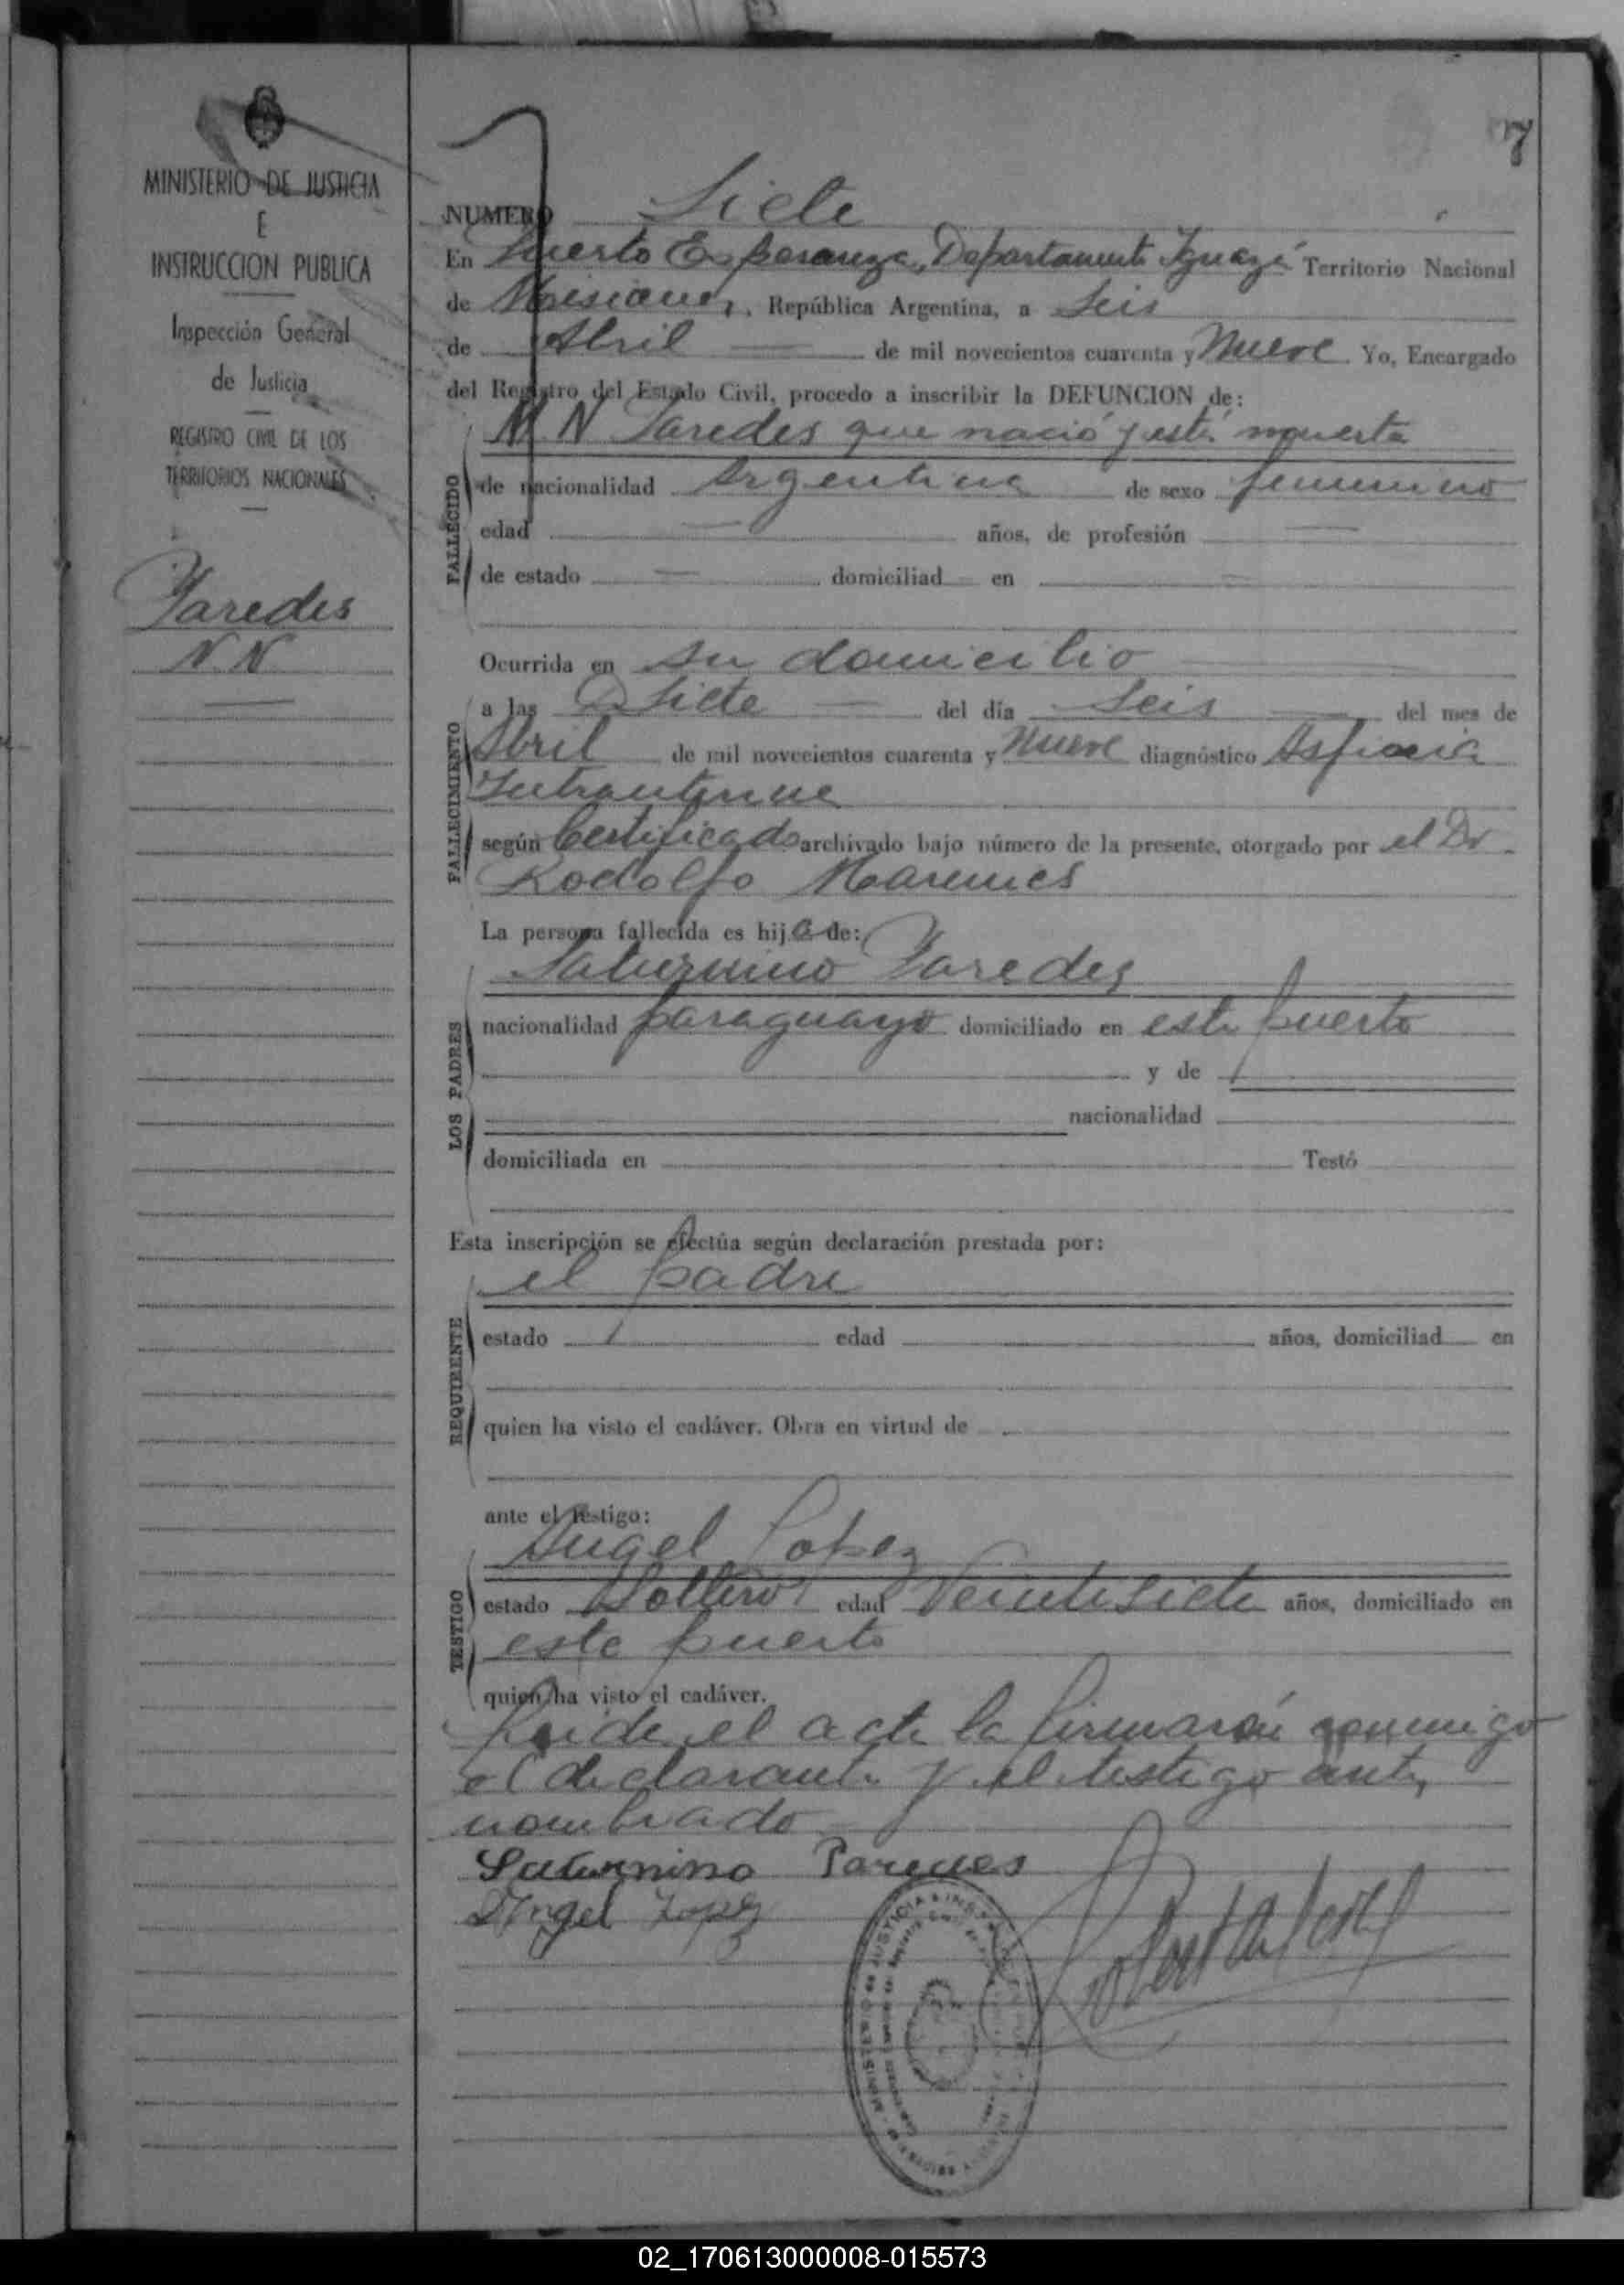 7
MINISTERIO DE JUSTICIA
E
INSTRUCCION PUBLICA
Inspección General
de Justicia
REGISTRO CIVIL DE LOS
TERRITORIOS NACIONALES
Paredes
N. N
7
NUMERO Siete
En Puerto Esperanza, Departamento Iguazú Territorio Nacional
de Misiones, República Argentina, a Seis
de Abril de mil novecientos cuarenta y Nueve Yo, Encargado
del Registro del Estado Civil, procedo a inscribir la DEFUNCION de:
N. N Paredes que nació y está muerta
FALLECIDO
de nacionalidad Argentina de sexo femenino
edad — años, de profesión —
de estado — domiciliad en —
Ocurrida en su domicilio
FALLECIMIENTO
a las Siete — del día Seis — del mes de
Abril de mil novecientos cuarenta y Nueve diagnóstico Asfixia
según Certificado archivado bajo número de la presente, otorgado por el Dr.
Rodolfo
La persona fallecida es hija de:
Saturnino Paredes
LOS PADRES
nacionalidad paraguayo domiciliado en este puerto
y de
nacionalidad
domiciliada en Testó
Esta inscripción se efectúa según declaración prestada por:
el padre
REQUIRENTE
estado edad años, domiciliad en
quien ha visto el cadáver. Obra en virtud de
ante el testigo:
Angel Lopez
TESTIGO
estado Soltero edad Veintisiete años, domiciliado en
este puerto
quien ha visto el cadáver.
Leida el acta la firmarón conmigo
el declarante y el testigo antes
nombrado
Saturnino Paredes
Angel Lopez
02_170613000008-015573